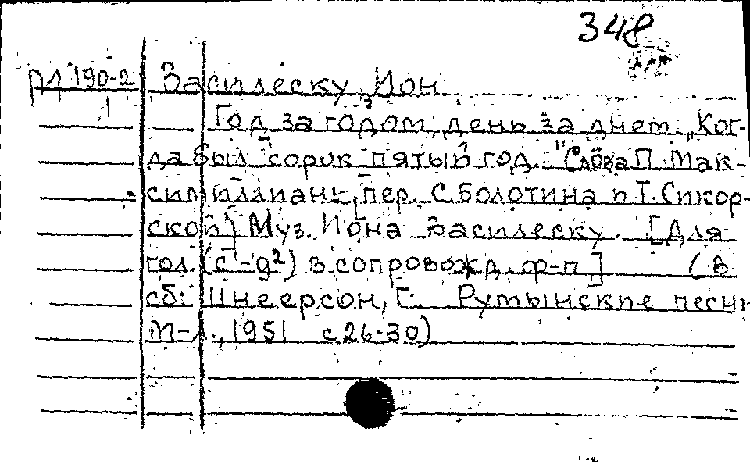 348
РЛ 190-2 Василеску, Ион
1 Год за годом, день за днем. „Ког-
да был сорок пятый год." Слова П. Мак-
симилиана, пер. С. Болотина и Т. Сикор-
ской) Муз. Иона Василеску. [Для
гол. (c¹-g²) в сопровожд. ф-п] (В
сб: Шнеерсон, Г. Румынские песни
М-Л., 1951 с 26-30)